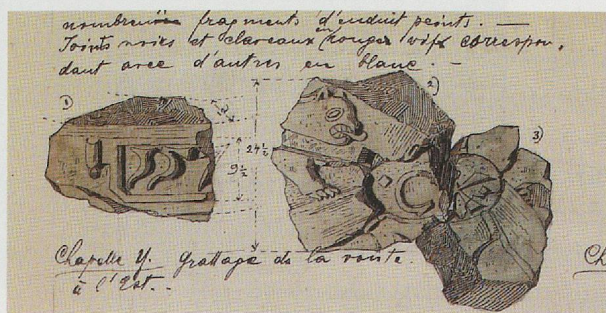 nombreux fragments d'enduit peints. —
Joints noirs et claveaux en rouge vif correspon-
dant avec d'autres en blanc. —
1)
2)
3)
24½
9½
Chapelle Y. grattage de la voute.
à l'Est.
Ch